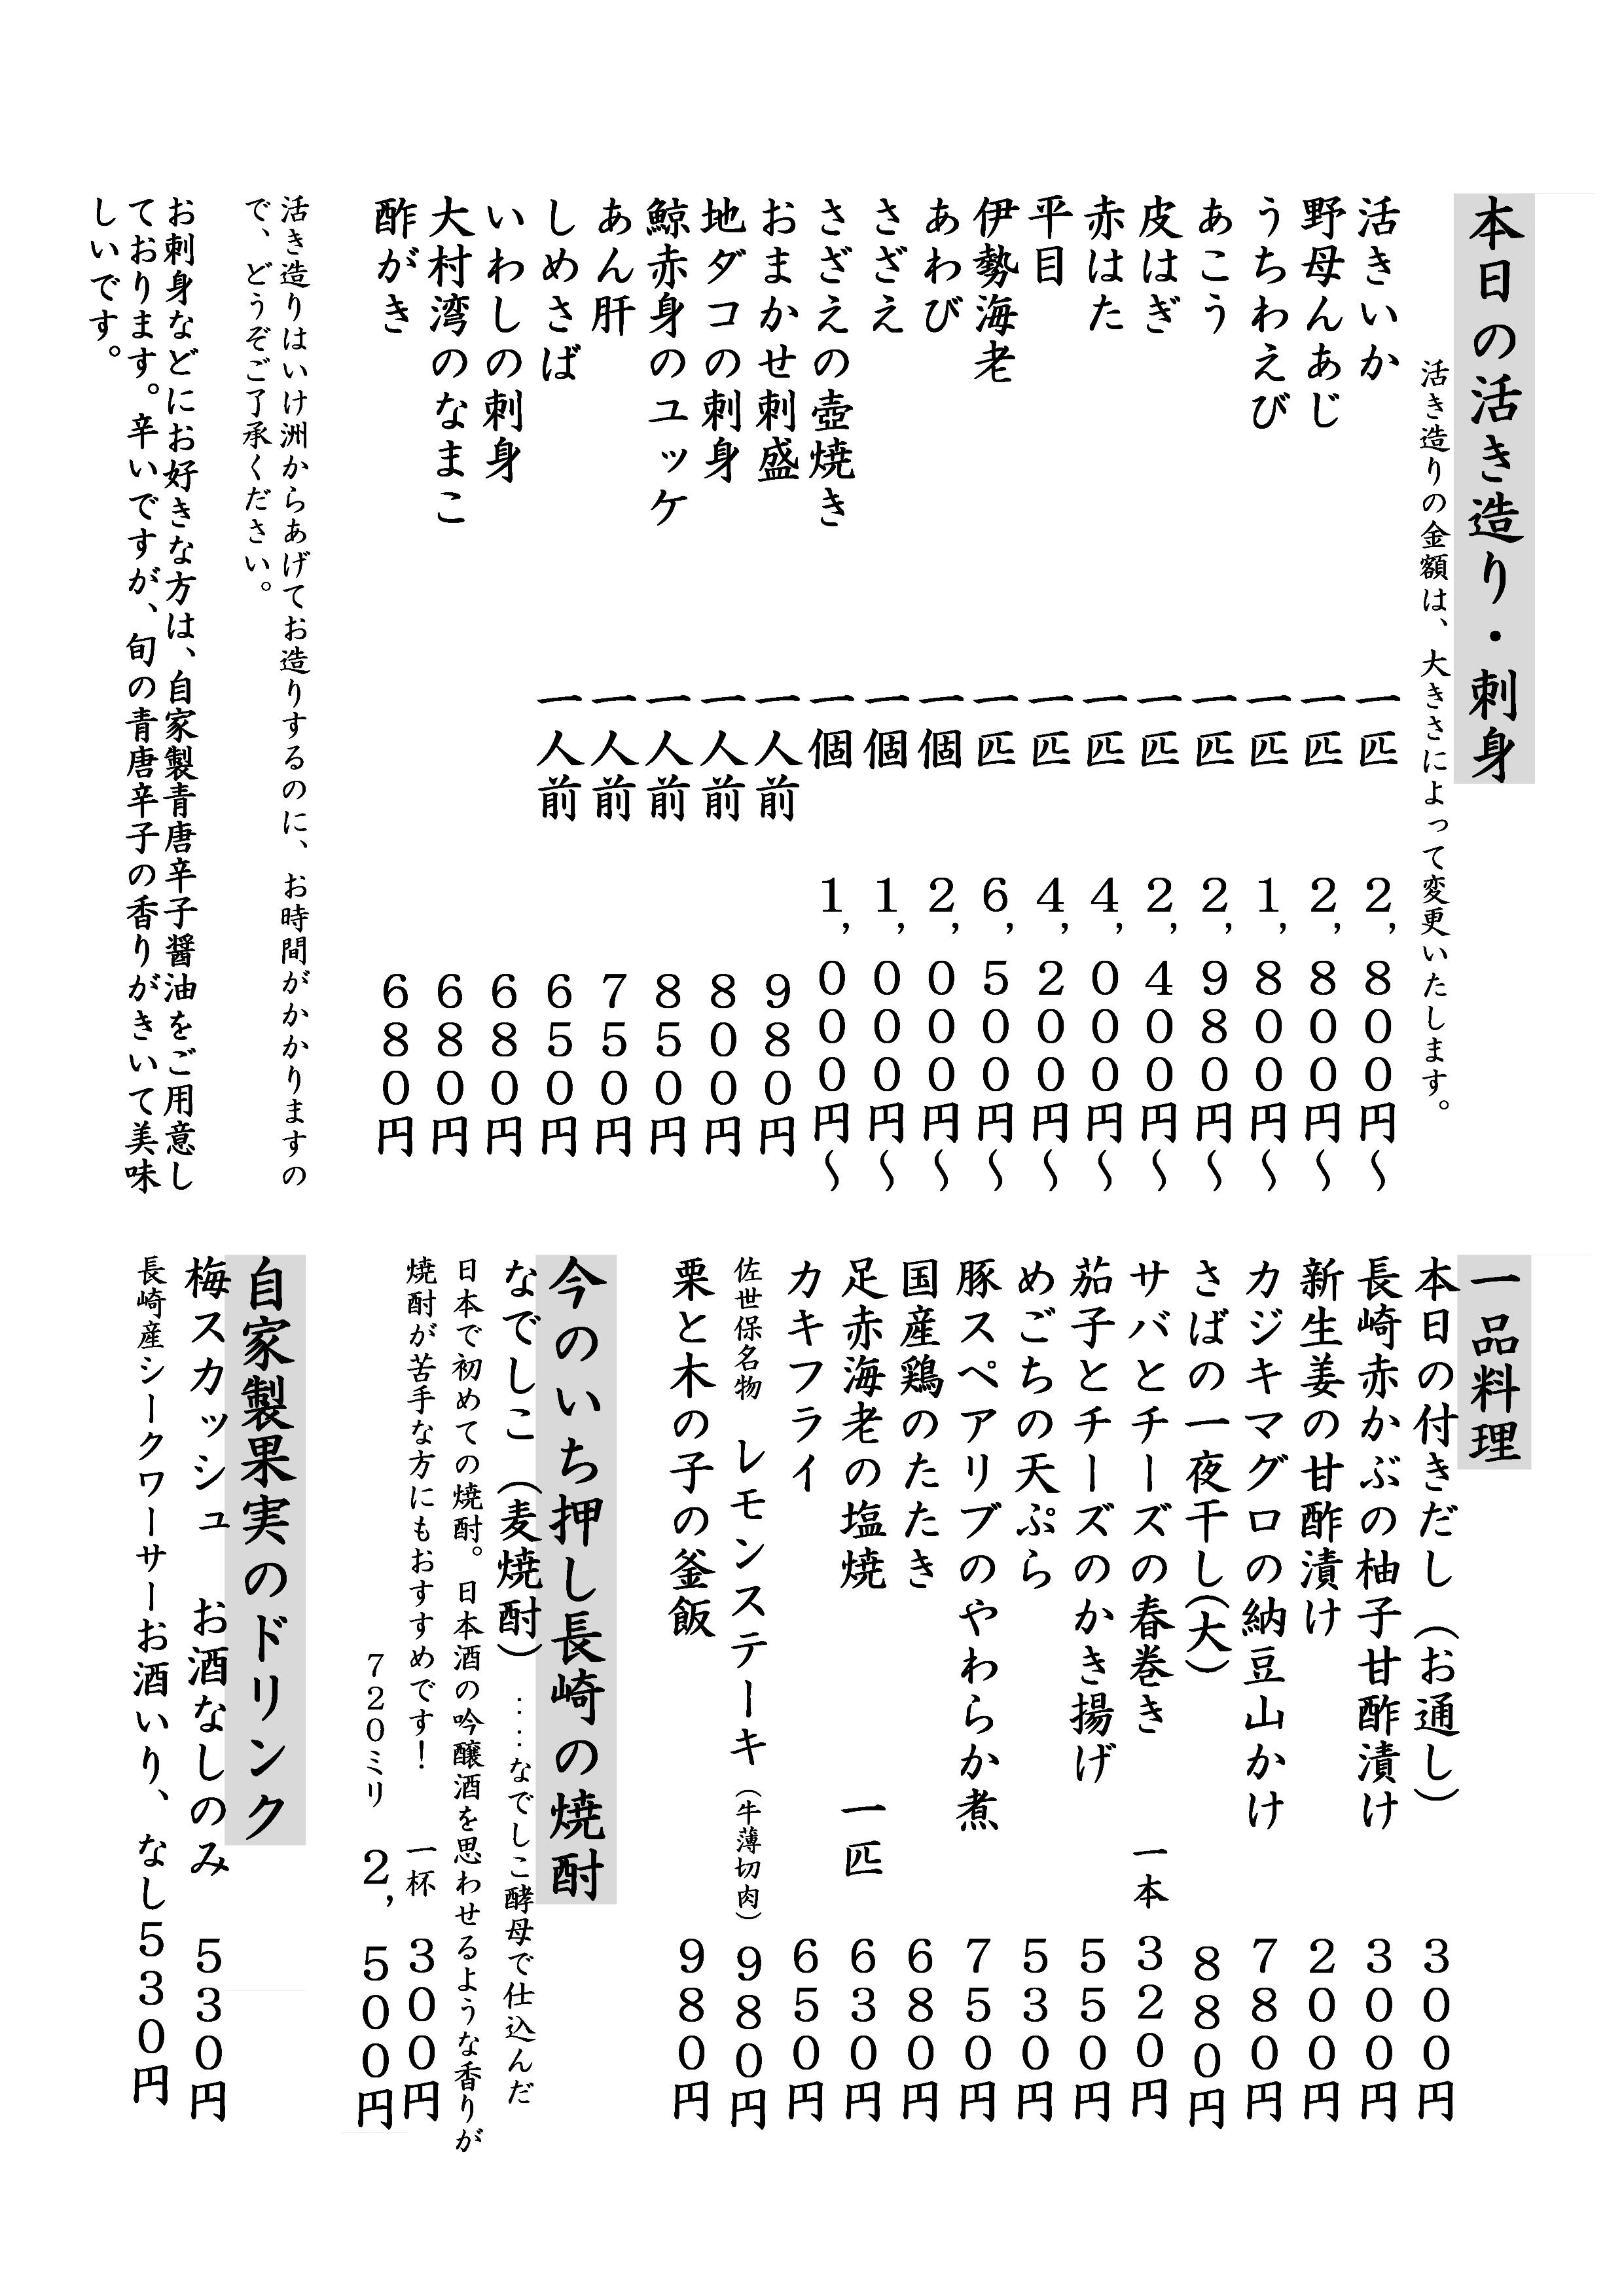 本日の活き造り・刺身
活き造りの金額は、大きさによって変更いたします。
活きいか 一匹 2,800円～
野母んあじ 一匹 2,800円～
うちわえび 一匹 1,800円～
あこう 一匹 2,980円～
皮はぎ 一匹 2,400円～
赤はた 一匹 4,000円～
平目 一匹 4,200円～
伊勢海老 一匹 6,500円～
あわび 一個 2,000円～
さざえ 一個 1,000円～
さざえの壺焼き 一個 1,000円～
おまかせ刺盛 一人前 980円
地ダコの刺身 一人前 800円
鯨赤身のユッケ 一人前 850円
あん肝 一人前 750円
しめさば 一人前 650円
いわしの刺身 680円
大村湾のなまこ 680円
酢がき 680円
活き造りはいけ洲からあげてお造りするのに、お時間がかかりますの
で、どうぞご了承ください。
お刺身などにお好きな方は、自家製青唐辛子醤油をご用意し
ております。辛いですが、旬の青唐辛子の香りがきいて美味
しいです。
一品料理
本日の付きだし（お通し） 300円
長崎赤かぶの柚子甘酢漬け 300円
新生姜の甘酢漬け 200円
カジキマグロの納豆山かけ 780円
さばの一夜干し(大) 880円
サバとチーズの春巻き 一本 320円
茄子とチーズのかき揚げ 550円
めごちの天ぷら 530円
豚スペアリブのやわらか煮 750円
国産鶏のたたき 680円
足赤海老の塩焼 一匹 630円
カキフライ 650円
佐世保名物 レモンステーキ（牛薄切肉） 980円
栗と木の子の釜飯 980円
今のいち押し長崎の焼酎
なでしこ（麦焼酎）‥‥なでしこ酵母で仕込んだ
日本で初めての焼酎。日本酒の吟醸酒を思わせるような香りが
焼酎が苦手な方にもおすすめです！ 一杯 300円
720ミリ 2,500円
自家製果実のドリンク
梅スカッシュ お酒なしのみ 530円
長崎産シークワーサーお酒いり、なし530円